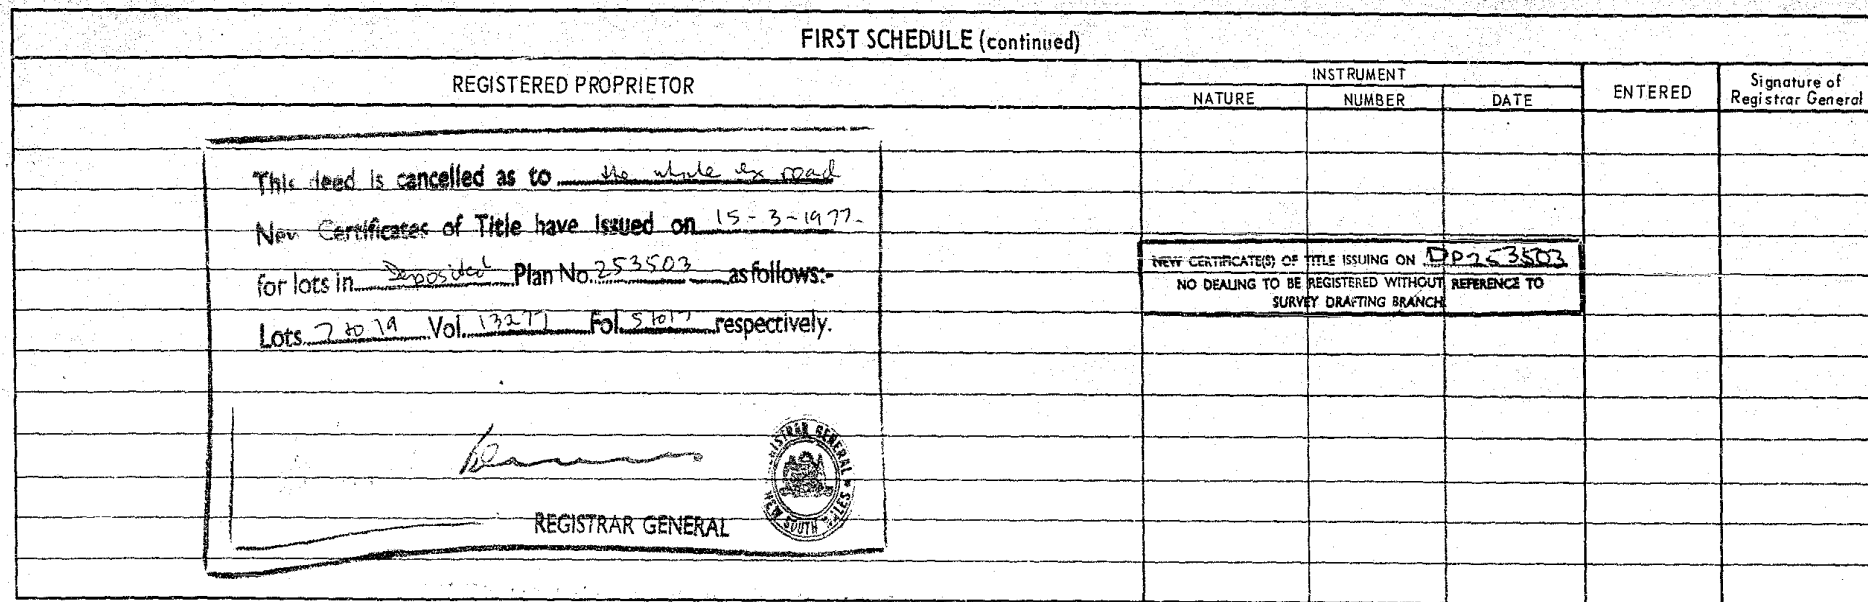 FIRST SCHEDULE (continued)
REGISTERED PROPRIETOR
INSTRUMENT
NATURE NUMBER DATE
ENTERED
Signature of
Registrar General
This deed is cancelled as to the whole ex road
New Certificates of Title have issued on 15-3-1977.
for lots in Deposited Plan No. 253503 as follows:-
Lots 7 to 19 Vol. 13277 Fol. 5 to 17 respectively.
REGISTRAR GENERAL
REGISTRAR GENERAL
NEW SOUTH WALES
NEW CERTIFICATE(S) OF TITLE ISSUING ON DP253503
NO DEALING TO BE REGISTERED WITHOUT REFERENCE TO
SURVEY DRAFTING BRANCH